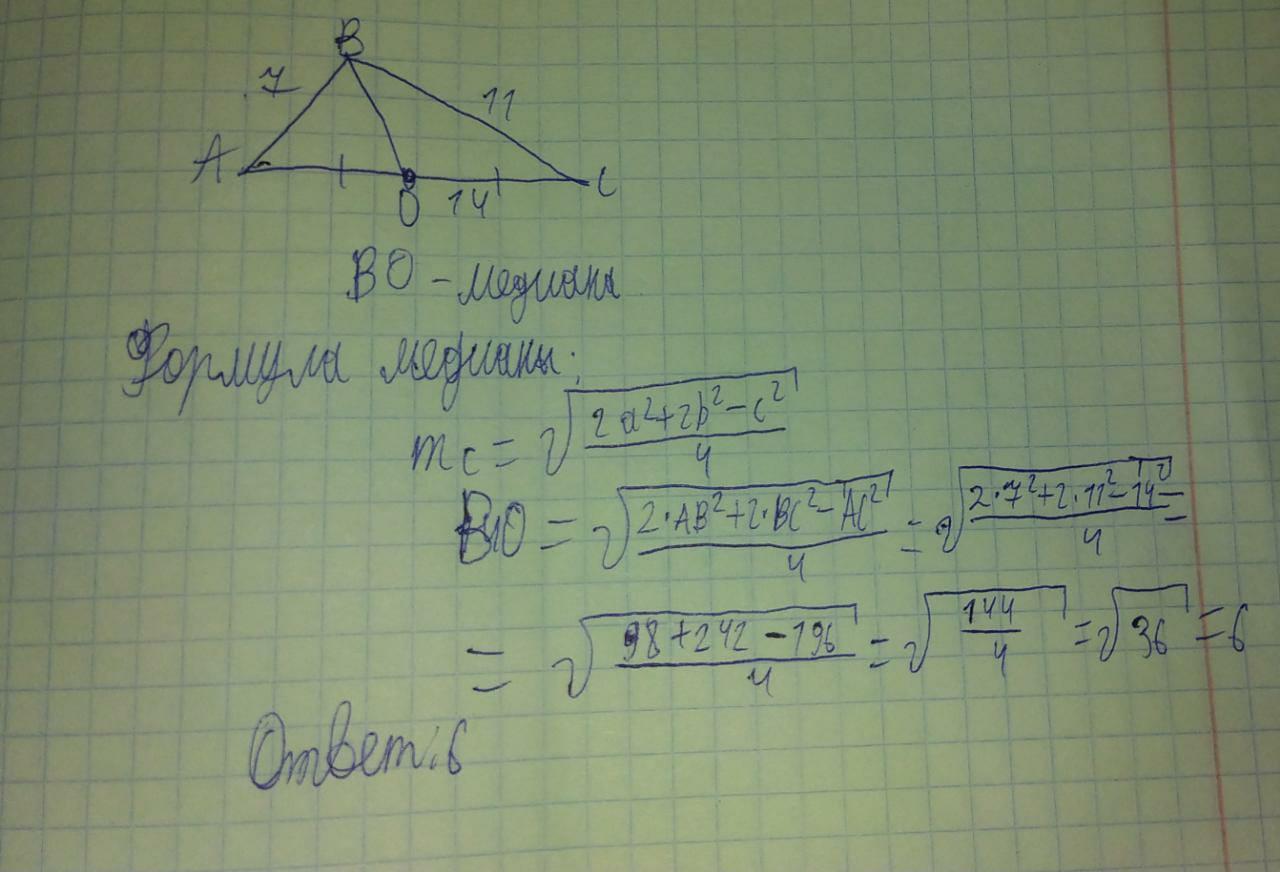 B
7
11
A
O
14
C
BO - медиана
Формула медианы:
mc = √((2a²+2b²-c²)/4)
BO = √((2·AB²+2·BC²-AC²)/4) = √((2·7²+2·11²-14²)/4) =
= √((98+242-196)/4) = √(144/4) = √36 = 6
Ответ: 6